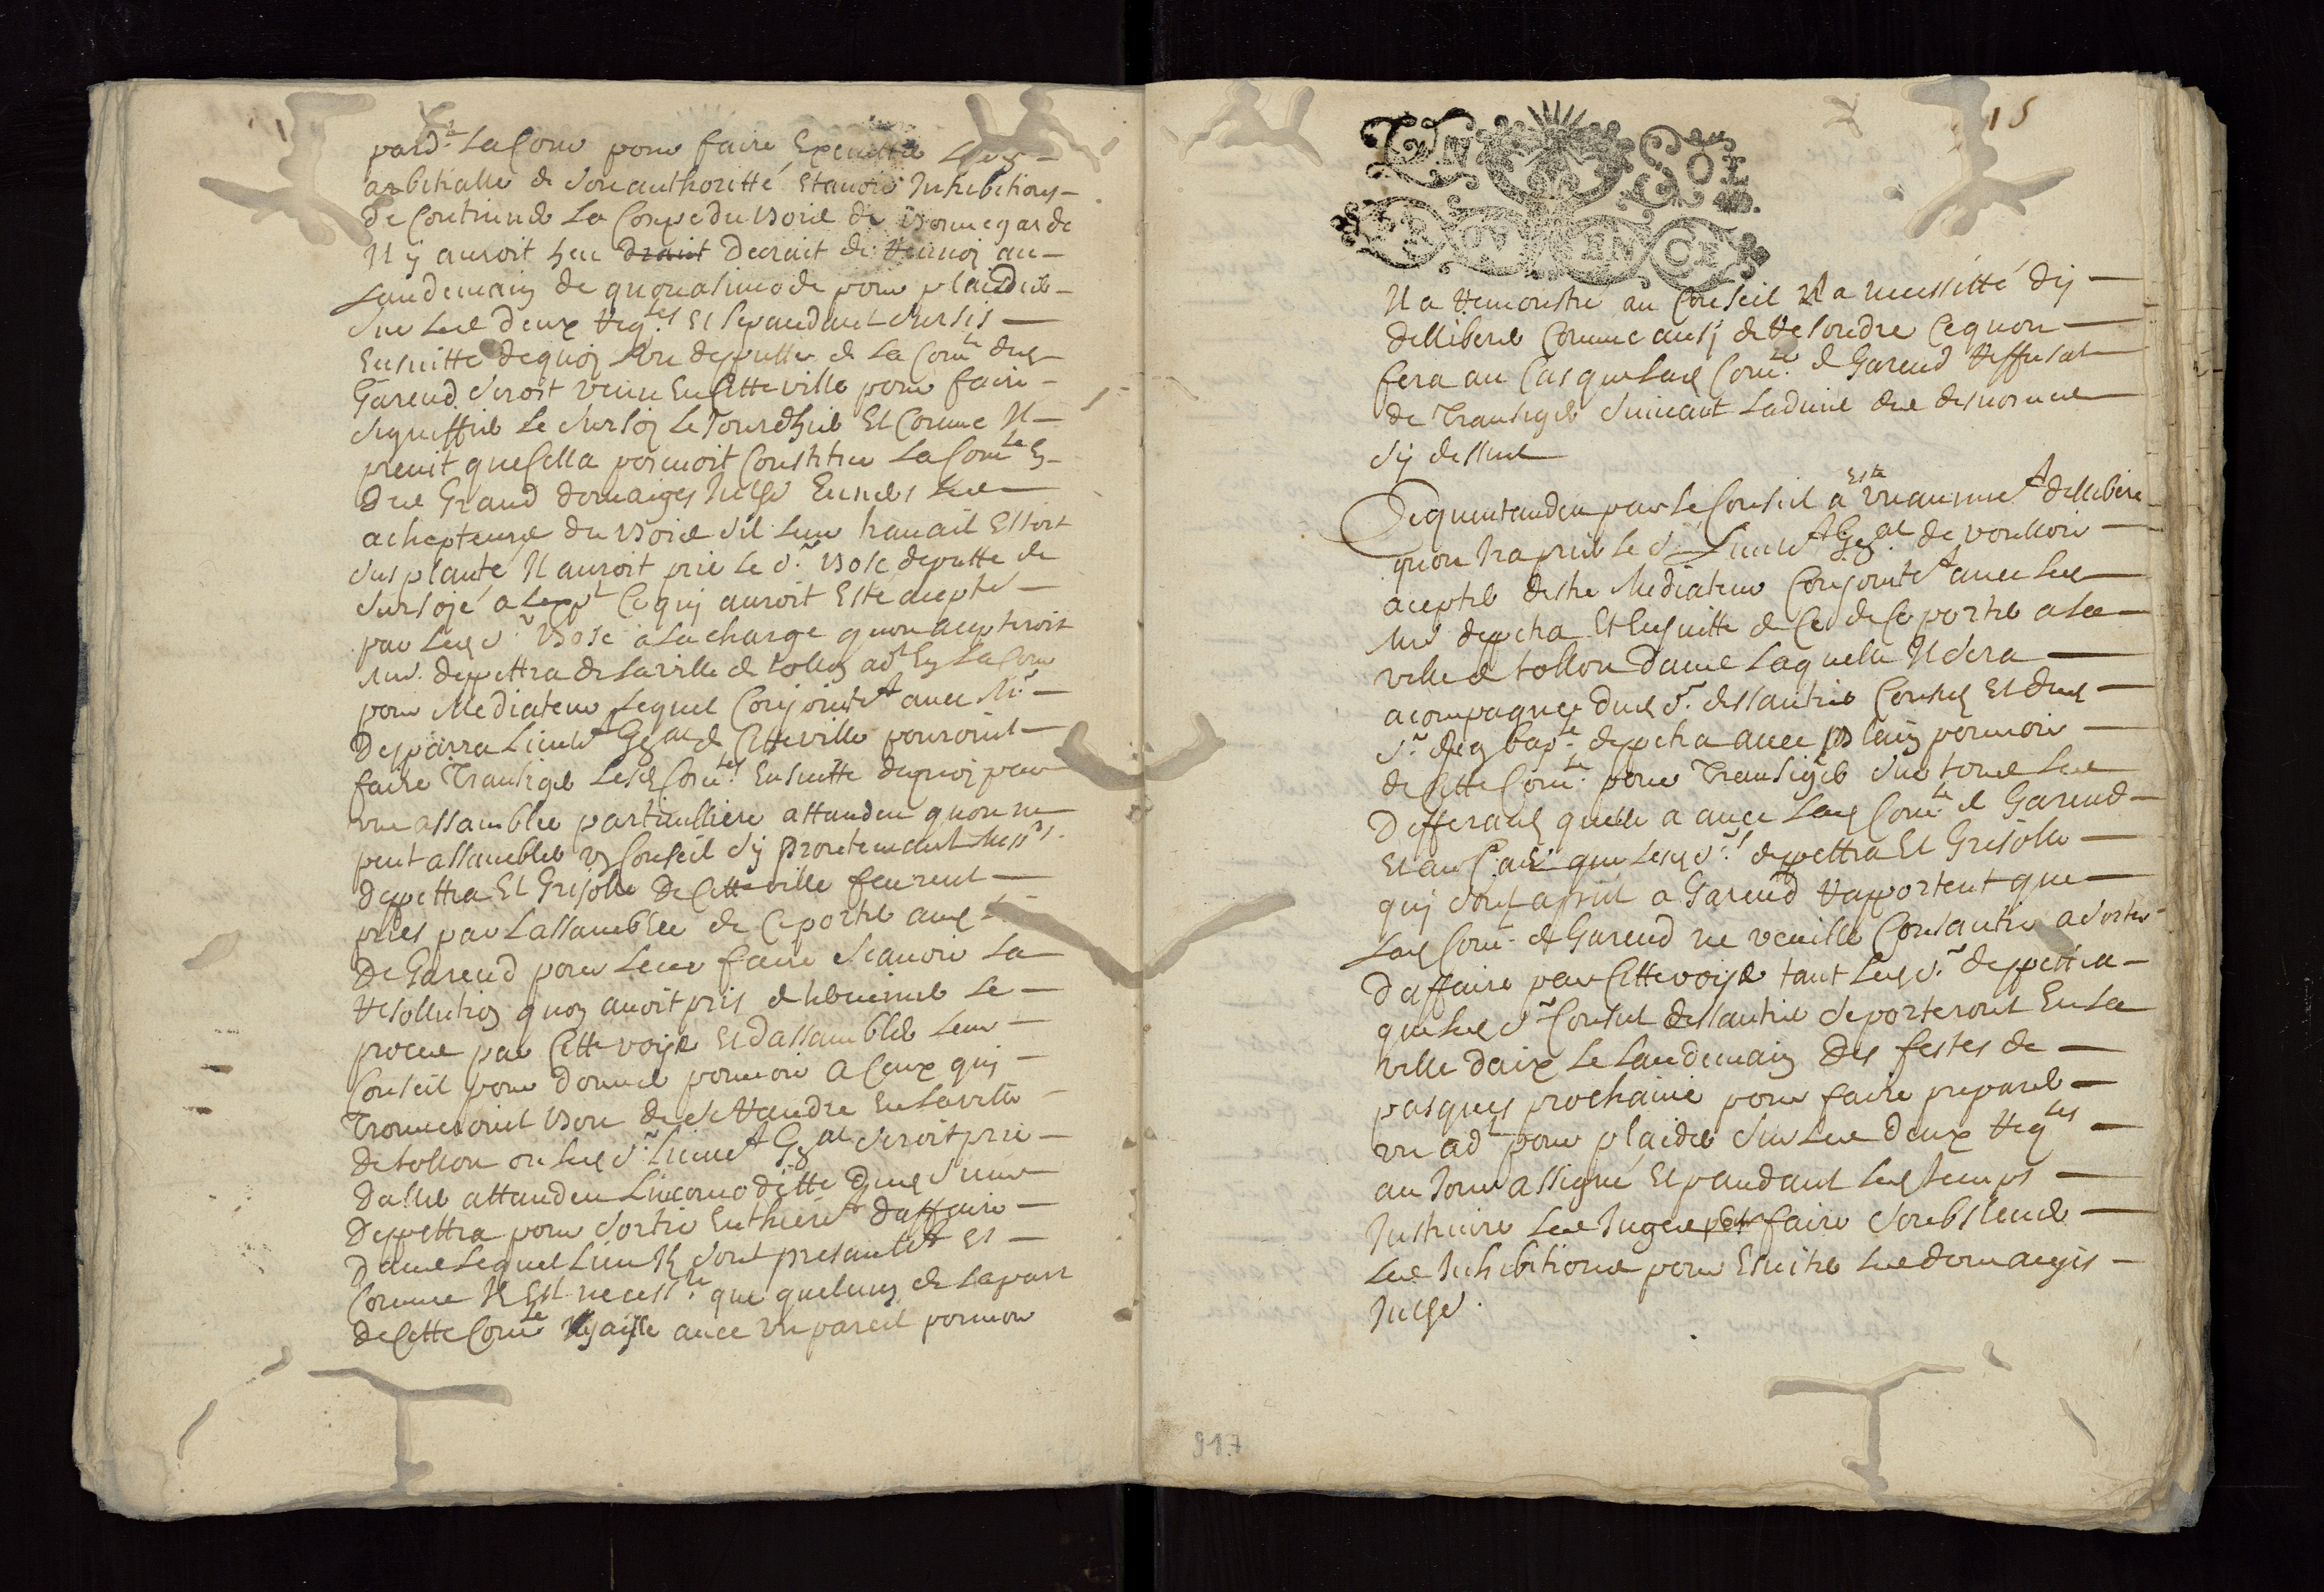 pard.^t La Cour pour faire Executer
arbitralle de son authoritté Et avoir Inhibitions
de Continuer La Coupe du Bois de Bonnegarde
Il y auroit heu Decrait de Renvoi au
Landemain de quouasimode pour plaider
Sur Les deux Req.tes Et Sepandant Sursis
Ensuitte dequoy de La Com.te de
Gareud Seroit venu En Cette ville pour faire
Signiffier Le Sursoy Le Jourdhui Et Comme Il
previt que Cella pouvoit Constituer La Com.te En
De Grand domaiges Envers Les
achepteurs du Bois Sil Leur travail Estoit
Susplanté Il auroit prié Le S.r Bosc deputte de
Sursoje Ce quy auroit Esté accepté
par Led S.r Bosc a La charge quon accepteroit
M.r depettra de La ville de tollon ad.t En La Cour
pour Mediateur Lequel Conjointe.t avec M.r
Desparra Lieute.t Gnal de Cette ville pouroint
faire Transiger Lesd Com.tes Ensuitte dequoy par
une assamblée particulliere attandeu quon ne
peut assambler un Conseil Sy promtemant
depettra Et Grisolle De Cette ville feurent
priés par Lassamblée de Ce porter aud
De Gareud pour Leur faire Scavoir La
Resollution quon avoit pris de terminer Le
proces par Cette voiye Et dassambler Leur
Conseil pour donner pouvoir a Ceux quy
Trouveroint Bon de Se Randre En La ville
de tollon ou Led S.r Lieute.t Gnal Seroit prié
daller attandeu Lincomoditté dud Sieur
Depettra pour Sortir Enthiere.t daffaire
Dans Lequel Lieu Ils Sont presante.t Et
Comme Il Est necess.re que quelcung de La part
de Cette Com.te y aille avec un pareil pouvoir
15
GN
COL
PROVENCE
Il a Remonstré au Conseil La necessitté dy
delliberer Comme aussy de Resoudre Ce quon
fera au Cas que Lad Com.te de Gareud Reffusat
de Transiger Suivant Ladvis des desnommes
Sy dessus
Cequentandeu par Le Conseil a Esté unanime.t delliberé
quon Ira prier Le S.r Lieute.t Gnal de voulloir
accepter destre Mediateur Conjointe.t avec Led
M.r depetra Et Ensuitte de Ce de Ce porter a La
ville de tollon Dans Laquelle Il Sera
acompagné dud S.r dessautrie Consul Et dud
S.r depetra avec plain pouvoir
de Cette Com.te pour Transiger Sur tous Les
Differans quelle a avec Lad Com.te de Gareud
Et au Cas que Lesd S.rs depettra Et Grisolle
quy Sont a Gareud Raportent que
Lad Com.te de Gareud ne veuille Consantir a Sortir
Daffaire par Cette voiye tant Led S.r depettra
que Led S.r Consul dessautrie Se porteront En La
ville daix Le Landemain Des festes de
pasques prochaine pour faire preparer
un ad.t pour plaider Sur Les deux Req.tes
au Jour assigné Et pandant Led Temps
Instruire Les Juges Et faire Soubstenir
Les Inhibitions pour Esviter Les domaiges
917